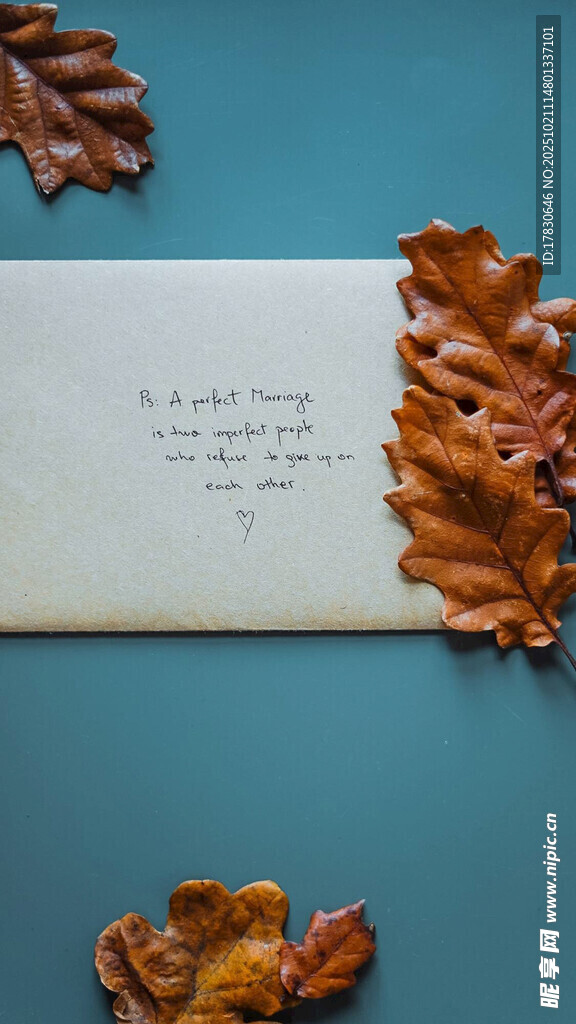 Ps: A perfect Marriage
is two imperfect people
who refuse to give up on
each other.
ID:17830646 NO:20251021114801337101
昵享网 www.nipic.cn